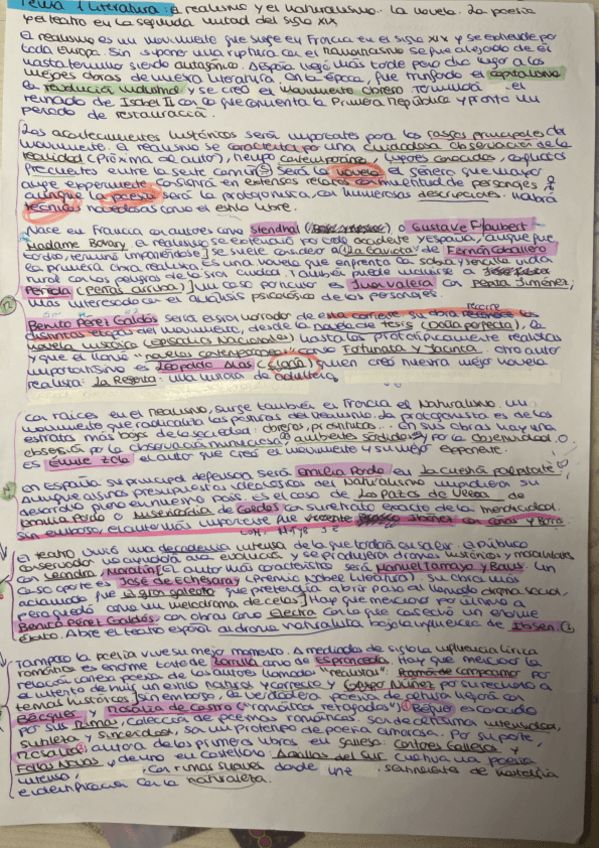 Tema 1 Literatura: el realismo y el naturalismo. La novela. La poesía
y el teatro en la segunda mitad del siglo XIX
El realismo es un movimiento que surge en Francia en el siglo XIX y se extiende por
toda Europa. Sin suponer una ruptura con el romanticismo se fue alejando de él
hasta terminar siendo antagónico. A España llegó más tarde pero dio lugar a las
mejores obras de nuestra literatura. En la época, fue triunfando el capitalismo
la revolución industrial y se creó el movimiento obrero. Terminada el
reinado de Isabel II con lo que comienza la Primera República y pronto un
periodo de restauración.
Los acontecimientos históricos serán importantes para los rasgos principales del
movimiento. El realismo se caracteriza por una cuidadosa observación de la
realidad (próxima al autor), tiempo contemporáneo, lugares conocidos, conflictos
frecuentes entre la gente común. Será la novela el género que mayor
auge experimente. Consistirá en extensos relatos con multitud de personajes
aunque la poesía será la protagonista, con numerosas descripciones. Habrá
técnicas novedosas como el estilo libre.
Nace en Francia con autores como Stendhal o Gustave Flaubert
Madame Bovary. El realismo se extendió por todo occidente y España, aunque fue
tardío, terminó imponiéndose] Se suele considerar a (La Gaviota) de Fernán Caballero
la primera obra realista. Es una novela que enfrenta la sabia vida
rural con los peligros de la gran ciudad. También puede incluirse a
Pereda (Peñas arriba)] Un caso particular es Juan Valera con Pepita Jiménez,
más interesado en el análisis psicológico de los personajes.
Benito Pérez Galdós será el gran narrador de esta corriente su obra recorre los
distintas etapas del movimiento, desde la novela de tesis (Doña Perfecta), la
novela histórica (Episodios Nacionales) hasta los prototípicamente realistas
y que él llamó "novelas contemporáneas" como Fortunata y Jacinta. Otro autor
importantísimo es Leopoldo Alas (Clarín) quien creó nuestra mejor novela
realista: La Regenta: una historia de adulterio
Con raíces en el realismo, surge también en Francia el Naturalismo. Un
movimiento que radicaliza las posturas del realismo. La protagonista es de los
estratos más bajos de la sociedad: obreros, prostitutas... En sus obras hay una
obsesión por la observación minuciosa, ambientes sórdidos y por la objetividad.
es Émile Zola el autor que creó el movimiento y su mejor exponente.
En España su principal defensora será Emilia Pardo en La cuestión palpitante
aunque algunos presupuestos ideológicos del Naturalismo impidieron su
desarrollo pleno en nuestro país. Es el caso de Los Pazos de Ulloa de
Emilia Pardo o Misericordia de Galdós con su retrato exacto de la mendicidad.
Sin embargo, el autor más importante fue Vicente Blasco Ibáñez con Cañas y Barro.
El teatro vivió una decadencia intensa de la que tardará en salir. El público
conservador no ayudaría a la evolución y se produjeron dramas históricos y moralistas
con Leandro Moratín] El autor más característico será Manuel Tamayo y Baus. Un
caso aparte es José de Echegaray (Premio Nobel Literatura). Su obra más
aclamada fue El gran galeoto que pretendía abrir paso al llamado drama social,
pero quedó como un melodrama de celos] Hay que mencionar por último a
Benito Pérez Galdós con obras como Electra con la que cosechó un enorme
éxito. Abre el teatro español al drama naturalista bajo la influencia de Ibsen
Tampoco la poesía vive su mejor momento. A mediados de siglo la influencia lírica
románticos es enorme tanto de Zorrilla como de Espronceda. Hay que mencionar la
relación con esa poesía de los autores llamados "realistas": Ramón de Campoamor por
el intento de huir, un estilo natural y correcto y Gaspar Núñez por su recurso a
temas históricos] Sin embargo, la verdadera poesía de género llegará con
Bécquer y Rosalía de Castro ("románticos retagados") Bécquer es conocido
por sus Rimas, colección de poemas románticos. Son de centísima intensidad,
sutileza y sinceridad, son un prototipo de poesía amorosa. Por su parte,
Rosalía, autora de los primeros libros en gallego: Cantares Gallegos y
Follas Novas y de uno en castellano: A orillas del Sar. Cultiva una poesía
intensa, con rimas suaves donde une sentimientos de nostalgia
e identificación con la naturaleza.